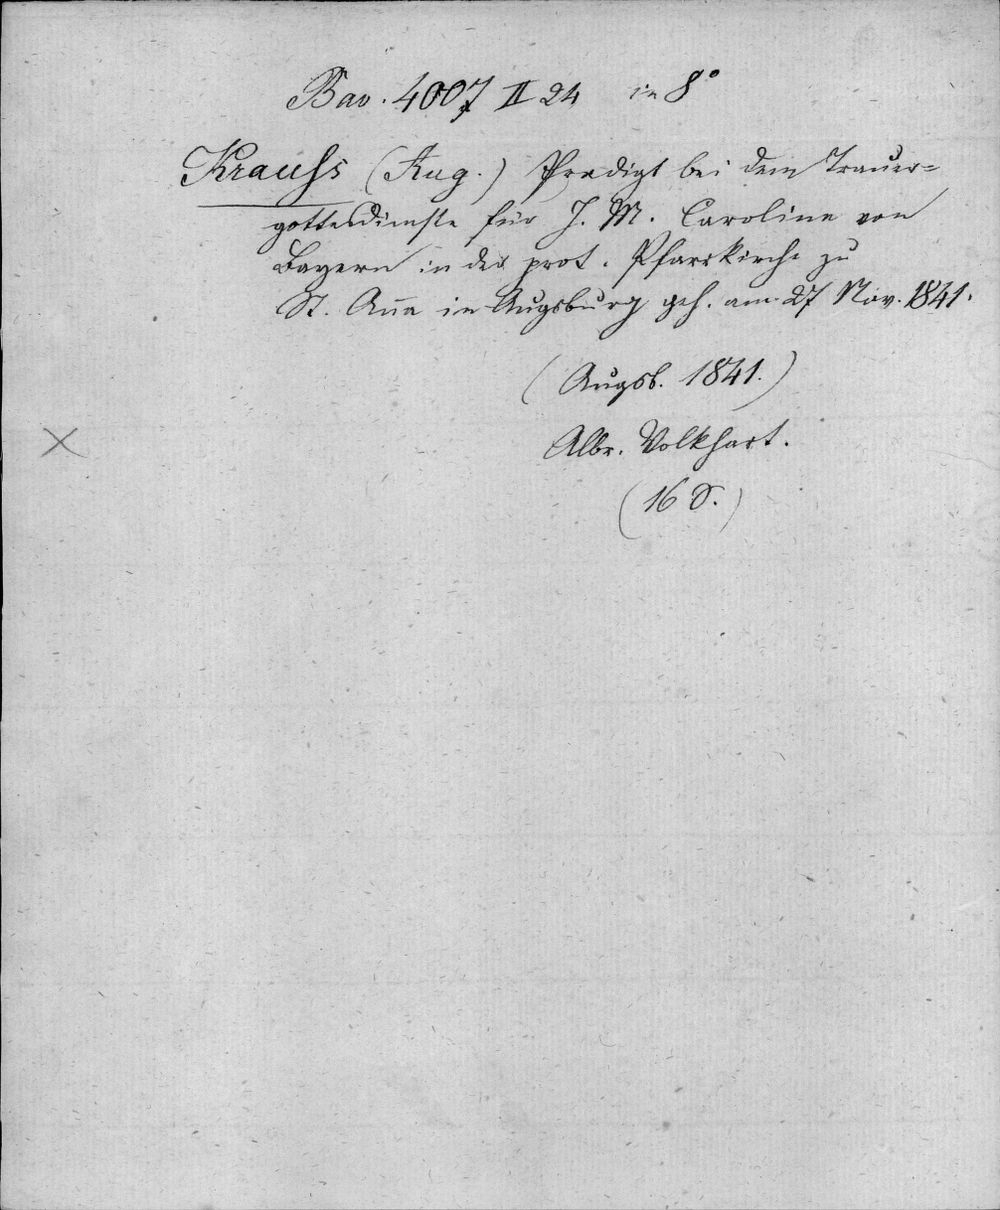 Bav. 4007 II 24 in 8°
Krauss (Aug.) Predigt bei dem Trauer=
gottesdienste für J. M. Caroline von
Bayern in der prot. Pfarrkirche zu
St. Anna in Augsburg geh. am 27 Nov. 1841.
(Augsb. 1841.)
Albr. Volkhart.
(16 S.)